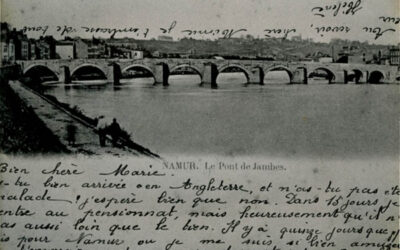 NAMUR. Le Pont de Jambes.
Bien chère Marie.
es-tu bien arrivée en Angleterre, et n'as-tu pas été
malade, j'espère bien que non. Dans 15 jours je
rentre au pensionnat, mais heureusement qu'il n'
pas aussi loin que le tien. Il y a quinze jours que j
is pour Namur ou je me suis si bien amusée
Au revoir chère
Mimie je t'embrasse de tout
cœur
Hélène